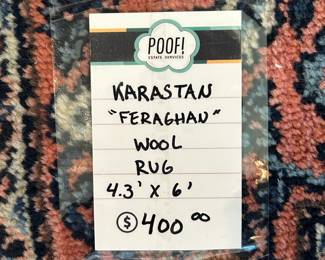 POOF!
ESTATE SERVICES
KARASTAN
"FERAGHAN"
WOOL
RUG
4.3' X 6'
$ 400 00